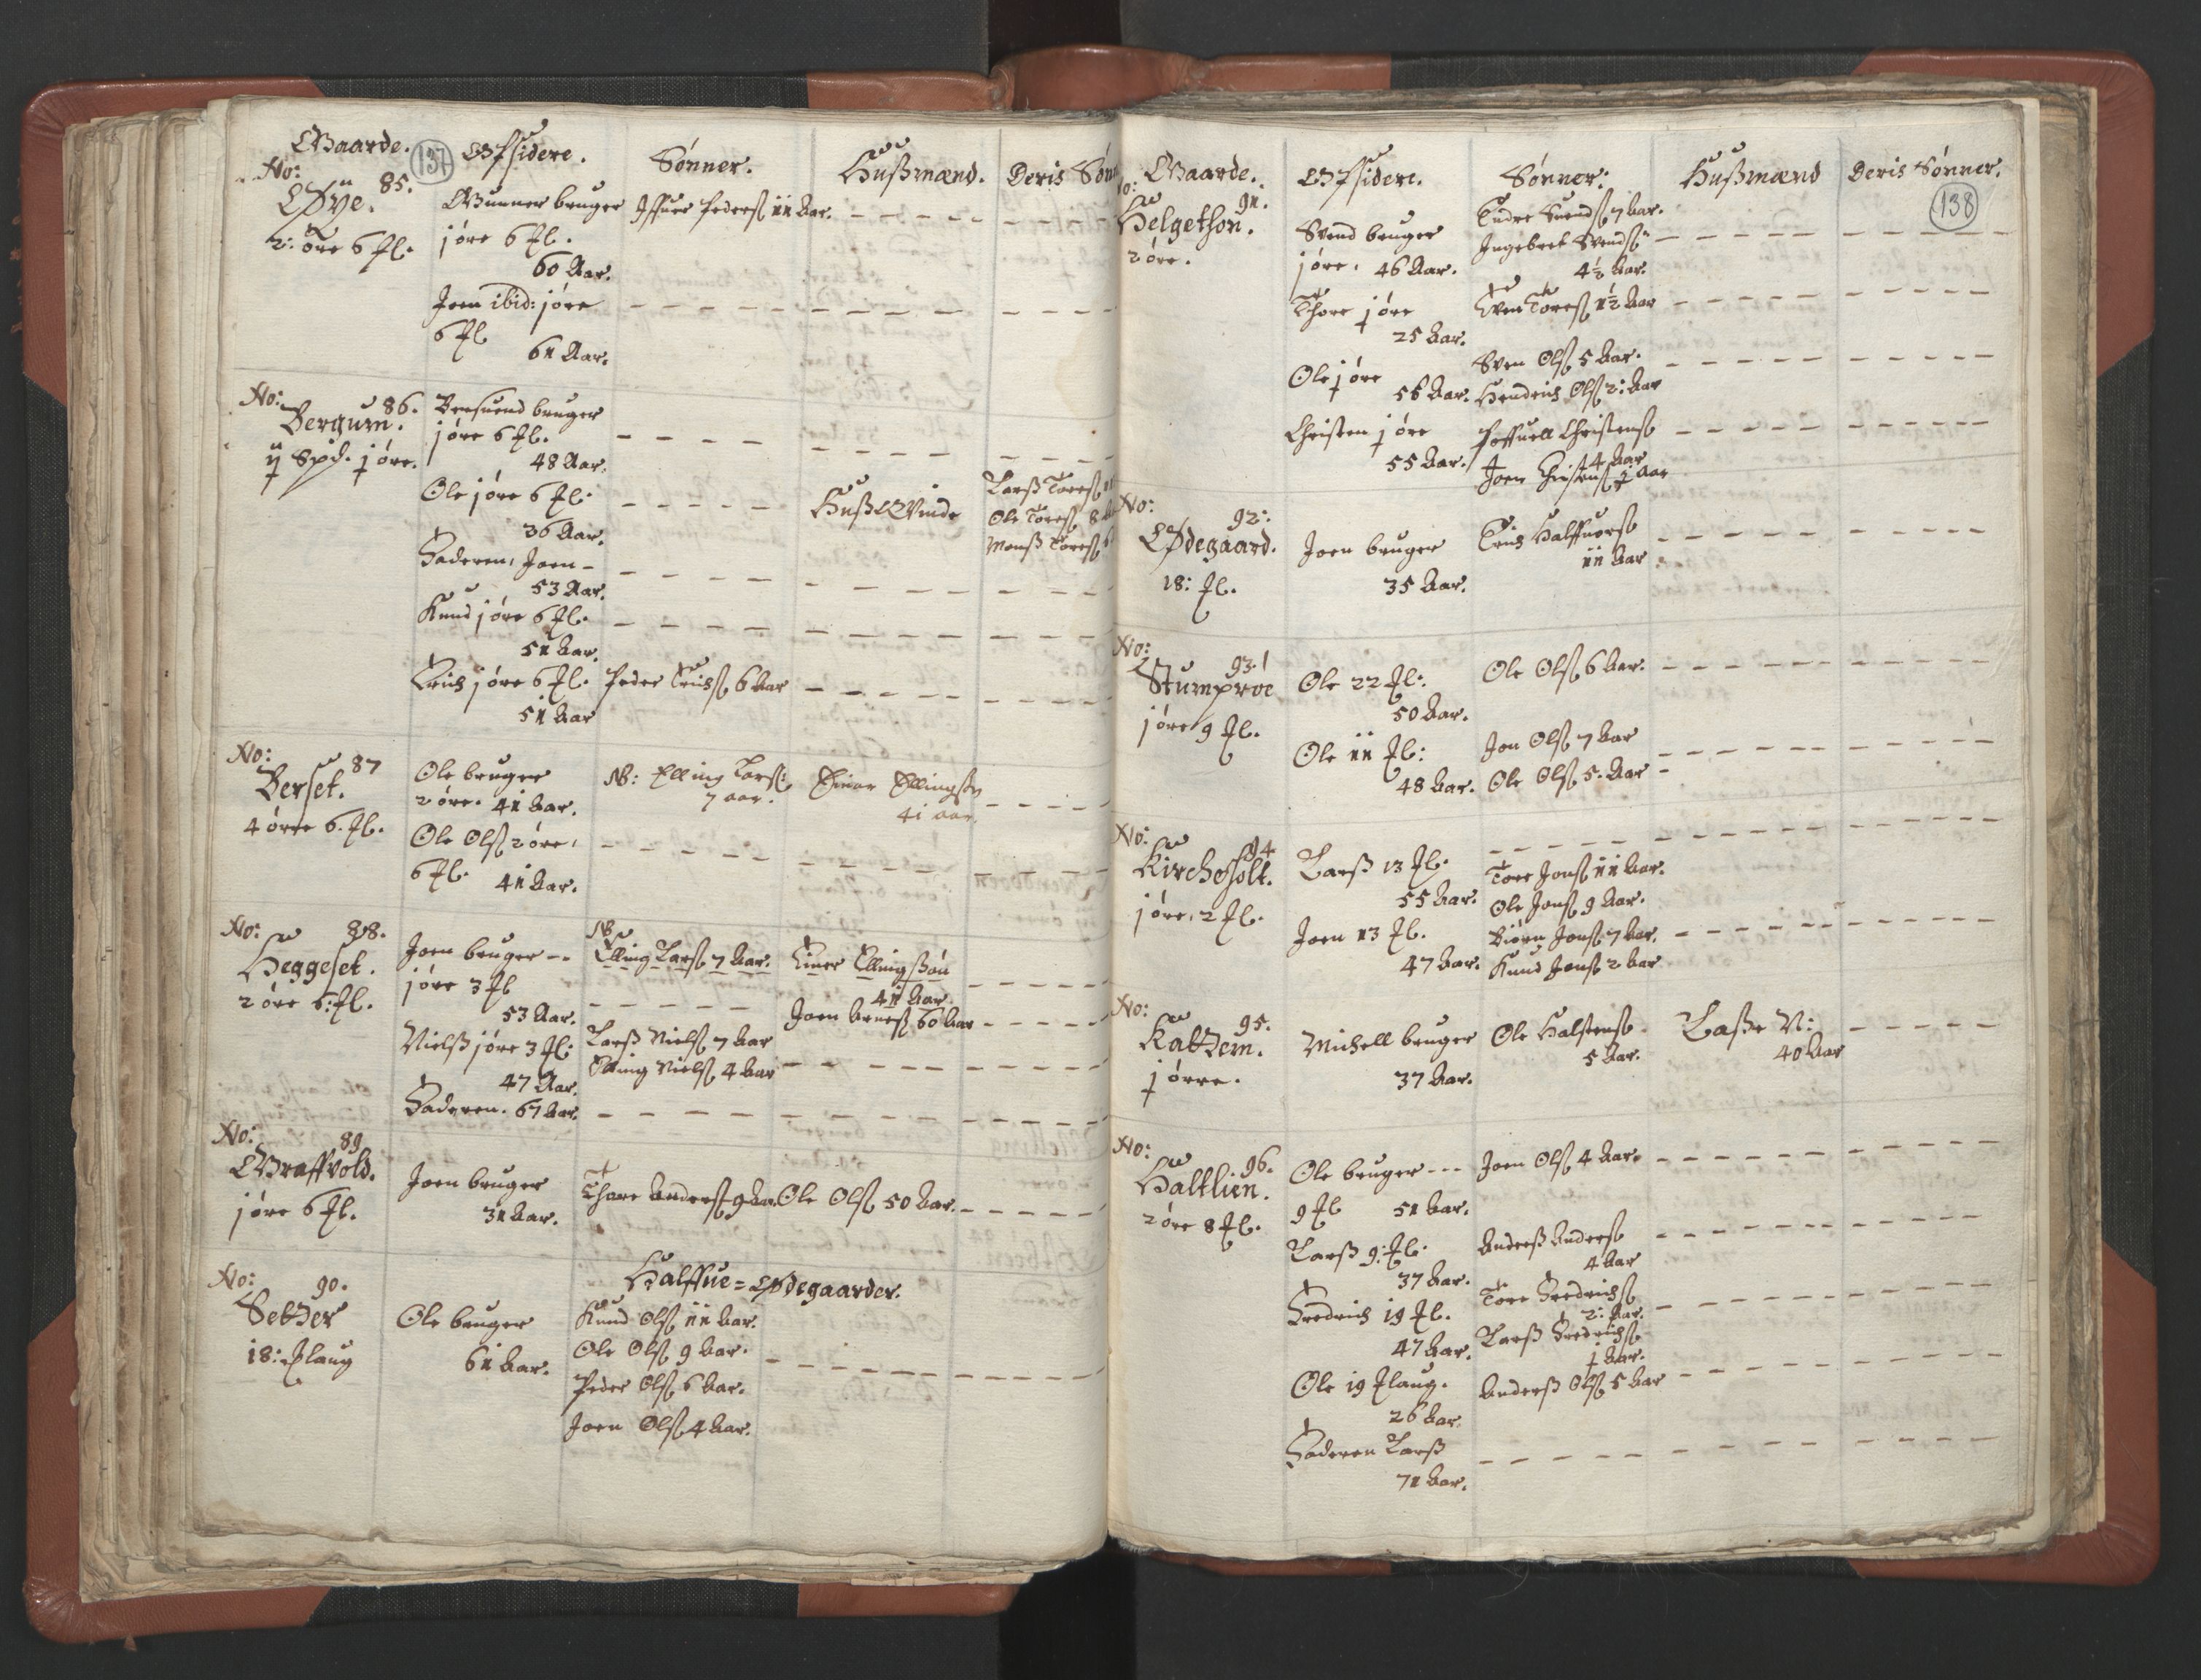 Gaarde. 137 Opsidere. Sønner. Hußmænd. Deris Sønn
No: 85.
Øye.
2: øre 6 Fl.
Gunner bruger
j øre 6 Fl.
60 Aar.
Iffuer Peders 11 Aar.
Joen ibid: j øre
6 Fl
61 Aar.
No: 86.
Bergum.
ij Spd. j øre.
Bersuend bruger
j øre 6 Fl.
48 Aar.
Ole j øre 6 Fl.
36 Aar.
Huß Qvinde
Larß Tores
Ole Tores 8
Monß Tores 6
Faderen, Joen
53 Aar.
Knud j øre 6 Fl.
51 Aar.
Erich j øre 6 Fl.
51 Aar
Peder Erichs 6 Aar
No: 87
Berset.
4 øre 6. Fl.
Ole bruger
2 øre. 41 Aar.
NB: Elling Lars:
7 aar.
Einar Ellingss
41 aar.
Ole Ols 2 øre,
6 Fl. 41 Aar.
No: 88.
Heggeset.
2 øre 6: Fl.
Joen bruger --
j øre 3 Fl
53 Aar.
NB
Elling Lars 7 Aar.
Einer Ellingßøn
41 Aar.
Joen Arnes 60 Aar
Nielß j øre 3 Fl:
47 Aar.
Larß Niels 7 Aar
Elling Niels 4 Aar
Faderen. 67 Aar.
No: 89
Graffvold.
j øre 6 Fl.
Joen bruger
31 Aar.
Thore Anders 9 Aar.
Ole Ols 50 Aar.
Halffue = Ødegaarder.
No: 90.
Setzer
18: Flaug
Ole bruger
61 Aar.
Knud Ols 11 Aar.
Ole Ols 9 Aar.
Peder Ols 6 Aar.
Joen Ols 4 Aar.
Gaarde. Opsidere. Sønner: Hußmænd Deris Sønner.
138
No: 91.
Helgethon.
2 øre.
Svend bruger
j øre, 46 Aar.
Endre Suends 7 Aar.
Ingebret Svends
4½ Aar.
Thore j øre
25 Aar.
Even Tores 1½ Aar
Ole j øre
56 Aar.
Sven Ols 5 Aar.
Hendrich Ols 2: Aar
Christen j øre
55 Aar.
Poffuell Christens
4 Aar
Joen Christens j Aar
No: 92:
Ødegaard.
18: Fl.
Joen bruger
35 Aar.
Erich Halffuors
11 Aar
No: 93.
Stumproe
j øre 9 Fl.
Ole 22 Fl:
50 Aar.
Ole Ols 6 Aar.
Ole 11 Fl:
48 Aar.
Jon Ols 7 Aar
Ole Ols 5. Aar
No: 94
Kircheholt.
j øre, 2 Fl.
Larß 13 Fl.
55 Aar.
Joen 13 Fl.
47 Aar.
Tore Jons 11 Aar.
Ole Jons 9 Aar.
Biørn Jons 7 Aar.
Knud Jons 2 Aar
No: 95.
Katzem.
j ørre.
Michell bruger
37 Aar.
Ole Halstens
5 Aar.
Laße N:
40 Aar
No: 96.
Haltlien.
2 øre 8 Fl.
Ole bruger ---
9 Fl 51 Aar.
Joen Ols 4 Aar.
Larß 9: Fl.
37 Aar.
Anderß Anders
4 Aar
Fredrich 19 Fl.
47 Aar.
Tore Fredrichs
2: Aar.
Larß Fredrichs
j Aar.
Ole 19 Flaug.
26 Aar.
Anderß Ols 5 Aar
Faderen Larß
71 Aar.